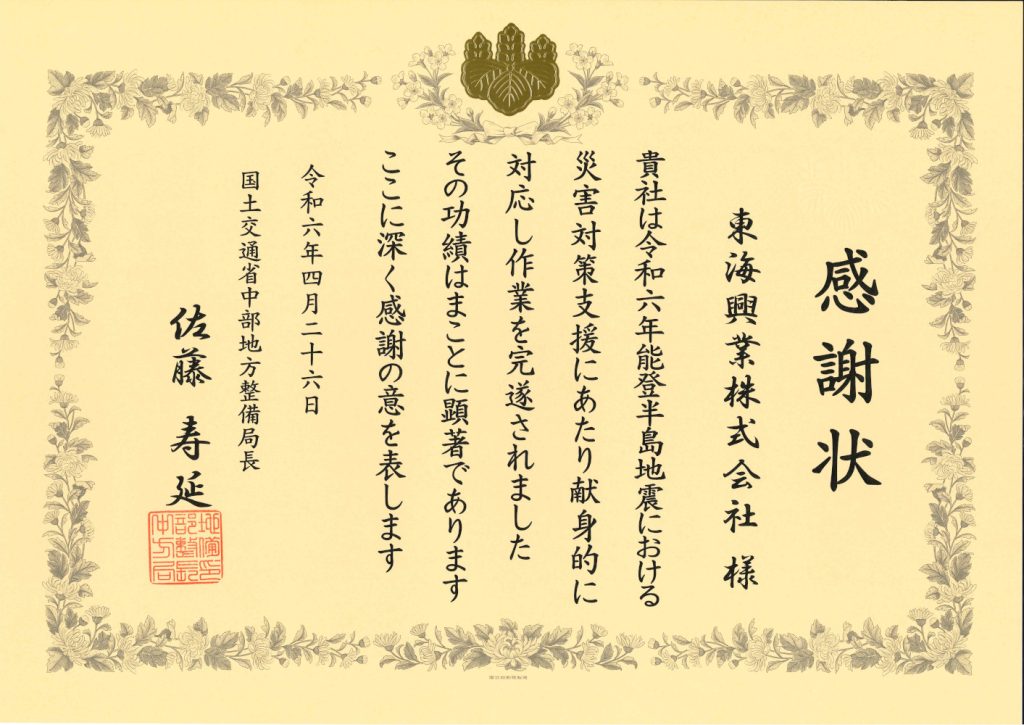 感謝状
東海興業株式会社 様
貴社は令和六年能登半島地震における
災害対策支援にあたり献身的に
対応し作業を完遂されました
その功績はまことに顕著であります
ここに深く感謝の意を表します
令和六年四月二十六日
国土交通省中部地方整備局長
佐藤 寿延